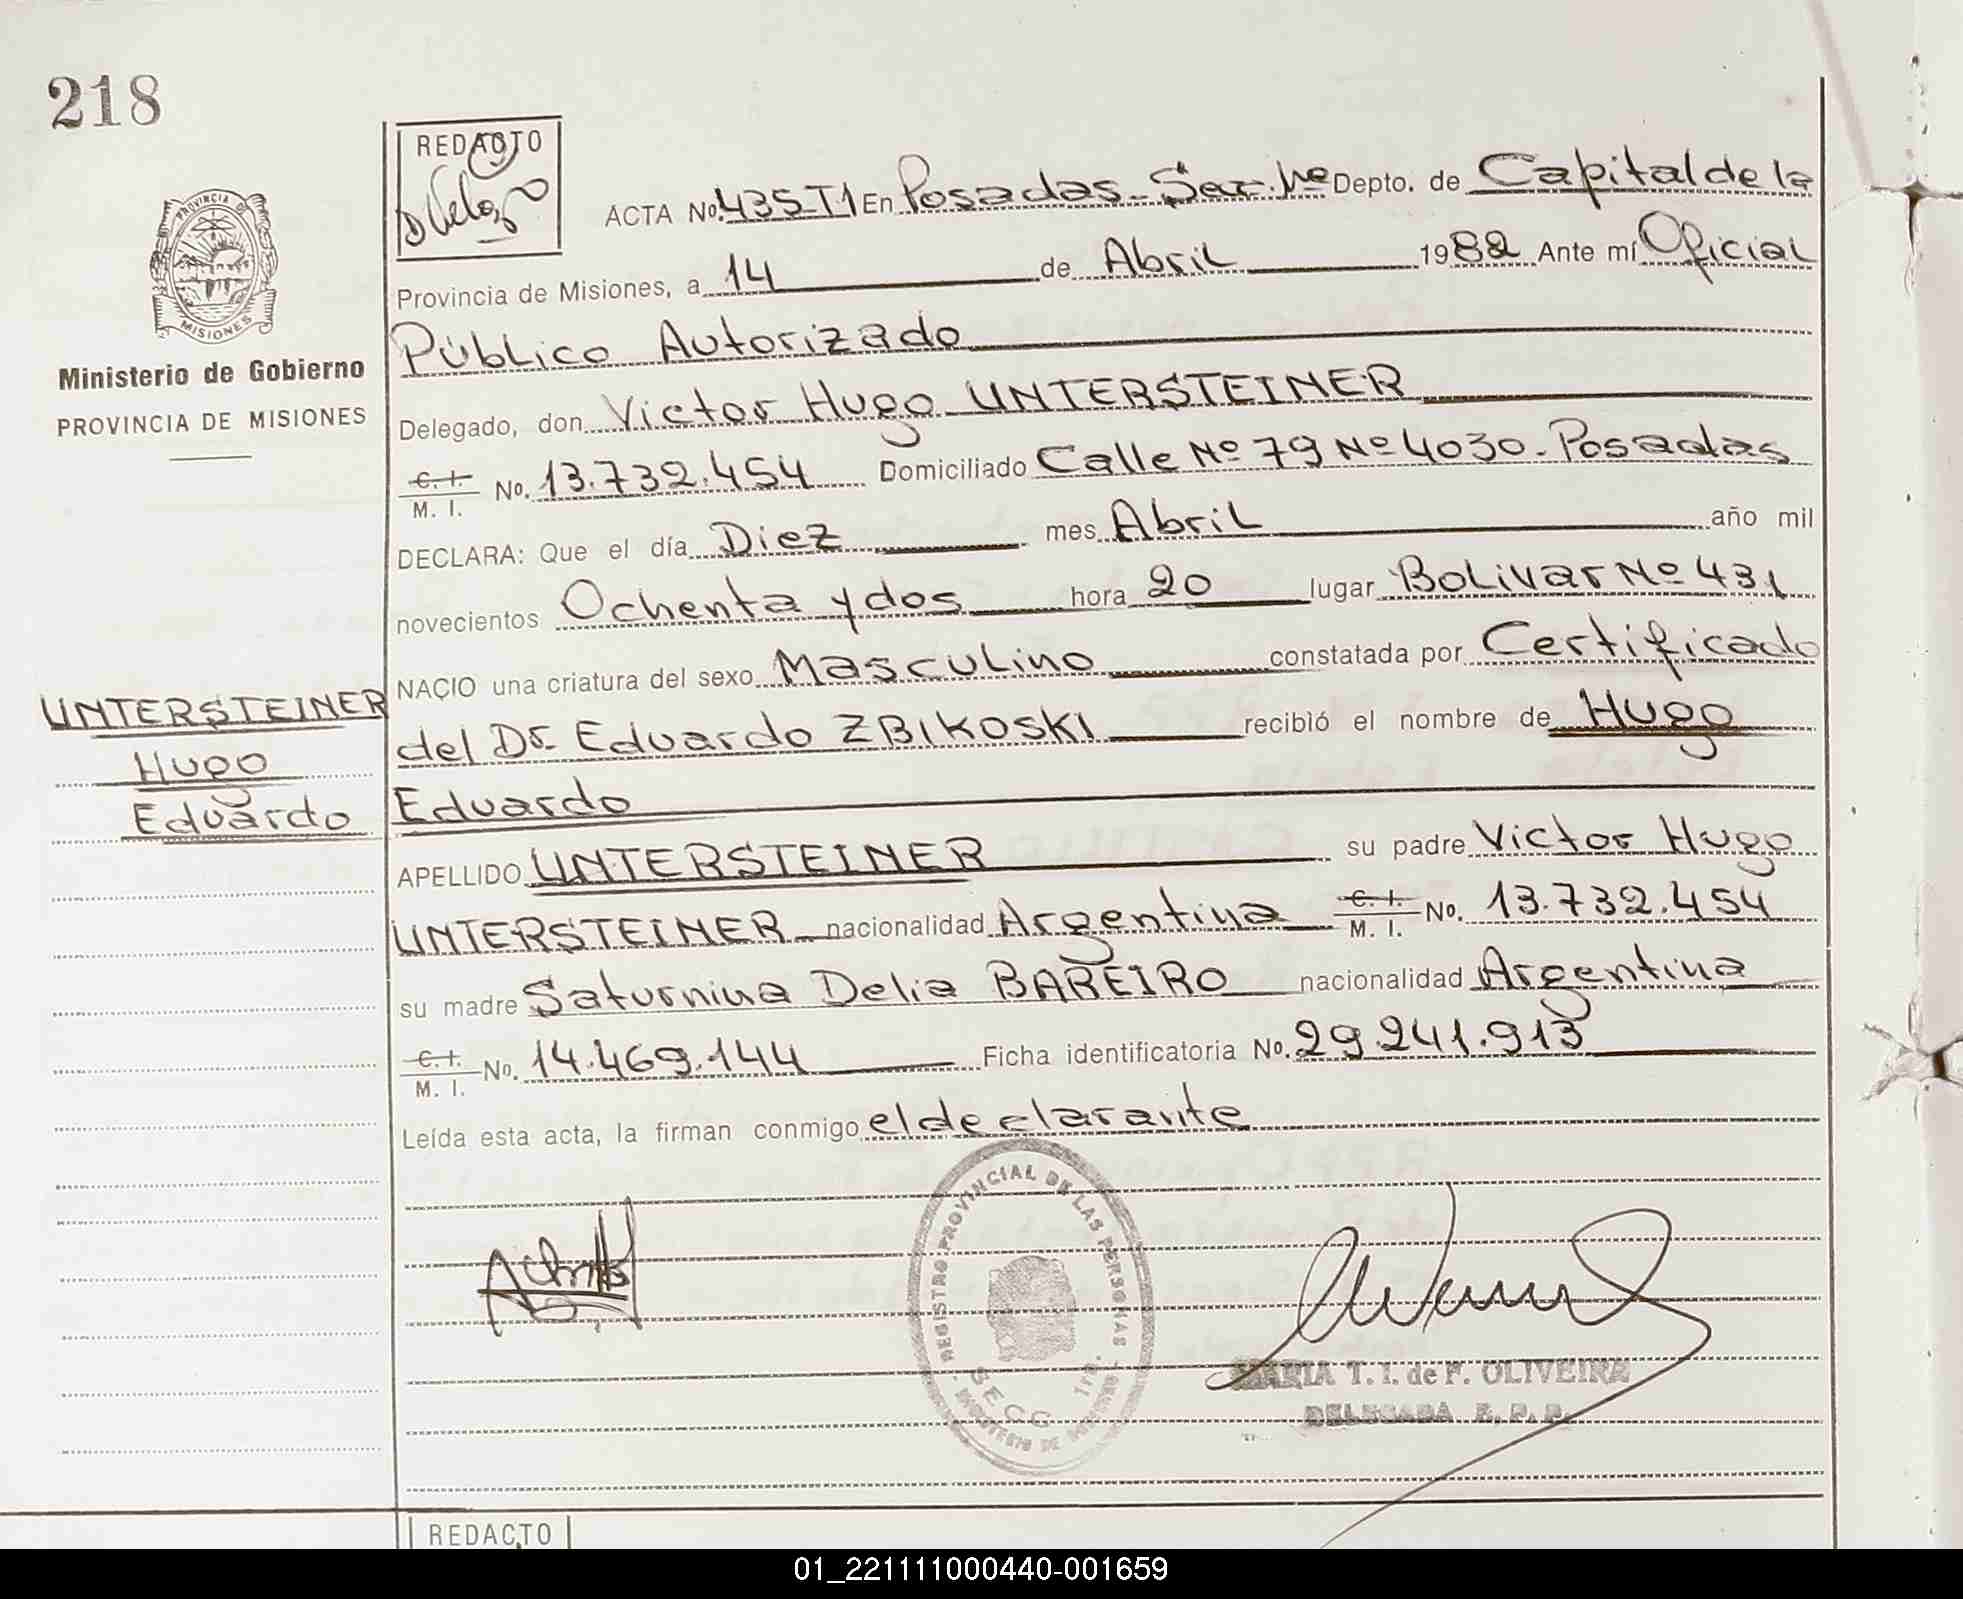 218
REDACTO
PROVINCIA DE
MISIONES
Ministerio de Gobierno
PROVINCIA DE MISIONES
ACTA No. 435-T1 En Posadas - Sec. 1ra Depto. de Capital de la
Provincia de Misiones, a 14 de Abril 1982 Ante mí Oficial
Público Autorizado
Delegado, don Victor Hugo UNTERSTEINER
C. I.
M. I. No. 13.732.454 Domiciliado Calle Nº 79 Nº 4030 - Posadas
DECLARA: Que el día Diez mes Abril año mil
novecientos Ochenta y dos hora 20 lugar Bolivar Nº 431
NACIO una criatura del sexo Masculino constatada por Certificado
del Dr. Eduardo ZBIKOSKI recibió el nombre de Hugo
Eduardo
UNTERSTEINER
Hugo
Eduardo
APELLIDO UNTERSTEINER su padre Victor Hugo
UNTERSTEINER nacionalidad Argentina C. I. M. I. No. 13.732.454
su madre Saturnina Delia BAREIRO nacionalidad Argentina
C. I.
M. I. No. 14.469.144 Ficha identificatoria No. 29.241.913
Leída esta acta, la firman conmigo el declarante
REGISTRO PROVINCIAL DE LAS PERSONAS
SECC. 1ra.
MINISTERIO DE GOBIERNO
MARIA T. I. de F. OLIVEIRA
DELEGADA R. P. P.
REDACTO
01_221111000440-001659